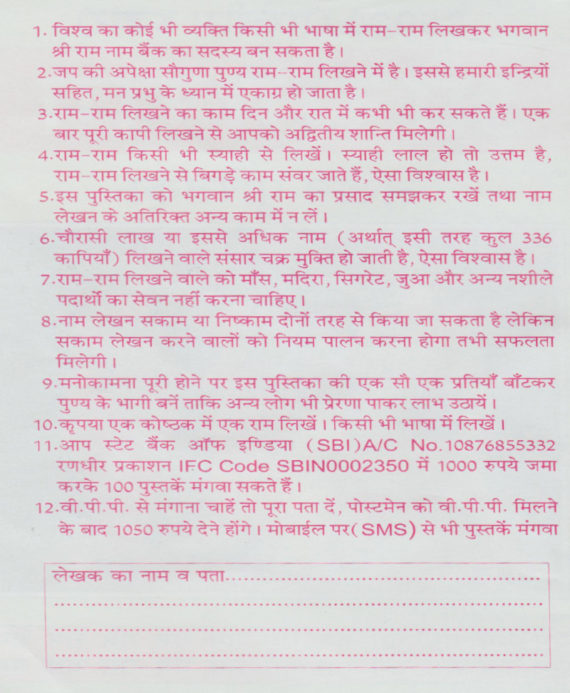 1. विश्व का कोई भी व्यक्ति किसी भी भाषा में राम-राम लिखकर भगवान
श्री राम नाम बैंक का सदस्य बन सकता है।
2.जप की अपेक्षा सौगुणा पुण्य राम-राम लिखने में है। इससे हमारी इन्द्रियों
सहित, मन प्रभु के ध्यान में एकाग्र हो जाता है।
3.राम-राम लिखने का काम दिन और रात में कभी भी कर सकते हैं। एक
बार पूरी कापी लिखने से आपको अद्वितीय शान्ति मिलेगी।
4.राम-राम किसी भी स्याही से लिखें। स्याही लाल हो तो उत्तम है,
राम-राम लिखने से बिगड़े काम संवर जाते हैं, ऐसा विश्वास है।
5.इस पुस्तिका को भगवान श्री राम का प्रसाद समझकर रखें तथा नाम
लेखन के अतिरिक्त अन्य काम में न लें।
6.चौरासी लाख या इससे अधिक नाम (अर्थात् इसी तरह कुल 336
कापियाँ) लिखने वाले संसार चक्र मुक्ति हो जाती है, ऐसा विश्वास है।
7.राम-राम लिखने वाले को माँस, मदिरा, सिगरेट, जुआ और अन्य नशीले
पदार्थो का सेवन नहीं करना चाहिए।
8.नाम लेखन सकाम या निष्काम दोनों तरह से किया जा सकता है लेकिन
सकाम लेखन करने वालों को नियम पालन करना होगा तभी सफलता
मिलेगी।
9.मनोकामना पूरी होने पर इस पुस्तिका की एक सौ एक प्रतियाँ बाँटकर
पुण्य के भागी बनें ताकि अन्य लोग भी प्रेरणा पाकर लाभ उठायें।
10.कृपया एक कोष्ठक में एक राम लिखें। किसी भी भाषा में लिखें।
11.आप स्टेट बैंक ऑफ इण्डिया (SBI)A/C No.10876855332
रणधीर प्रकाशन IFC Code SBIN0002350 में 1000 रुपये जमा
करके 100 पुस्तकें मंगवा सकते हैं।
12.वी.पी.पी. से मंगाना चाहें तो पूरा पता दें, पोस्टमेन को वी.पी.पी. मिलने
के बाद 1050 रुपये देने होंगे। मोबाईल पर(SMS) से भी पुस्तकें मंगवा
लेखक का नाम व पता